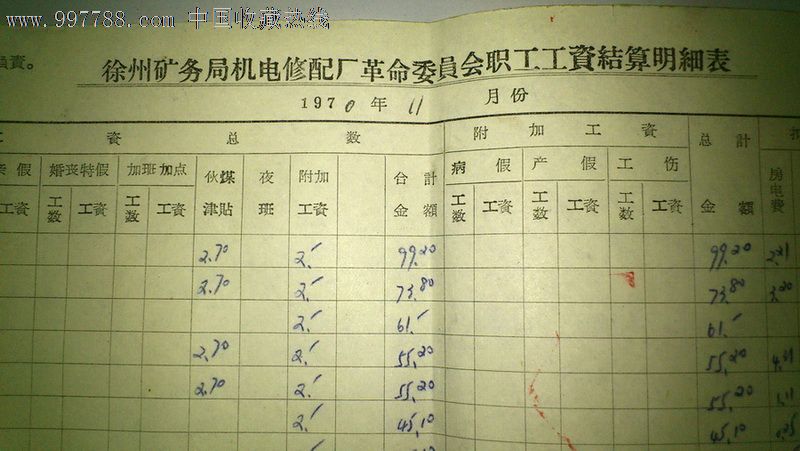 www.997788.com 中国收藏热线
负责。
徐州矿务局机电修配厂革命委員会职工工資結算明細表
1970年 11 月份
資 总 数 附加工資 总計
假 婚丧特假 加班加点 伙煤津貼 夜班 附加工資 合計金額 病假 产假 工伤 金額 房电费
工資 工数 工資 工数 工資 工数 工資 工数 工資 工数 工資
2.70 2.- 99.20 99.20 2.21
2.70 2.- 73.80 73.80 3.20
2.- 61.- 61.-
2.70 2.- 55.20 55.20
2.70 2.- 55.20 55.20
2.- 45.10 45.10